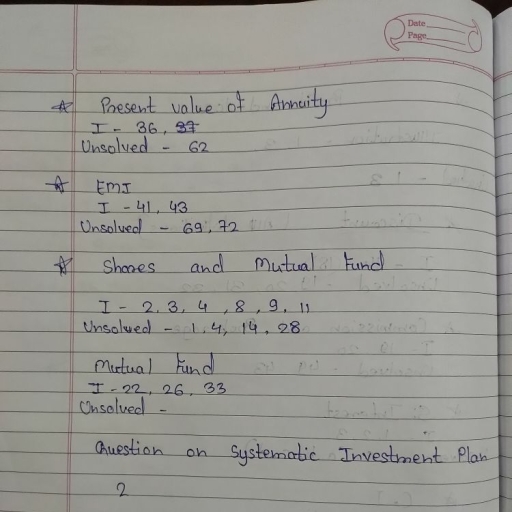 Date
Page
☆ Present value of Annuity
I - 36, 37
Unsolved - 62
☆ EMI
I - 41, 43
Unsolved - 69, 72
☆ Shares and Mutual Fund
I - 2, 3, 4, 8, 9, 11
Unsolved - 1, 4, 14, 28
Mutual Fund
I - 22, 26, 33
Unsolved -
Question on Systematic Investment Plan
2